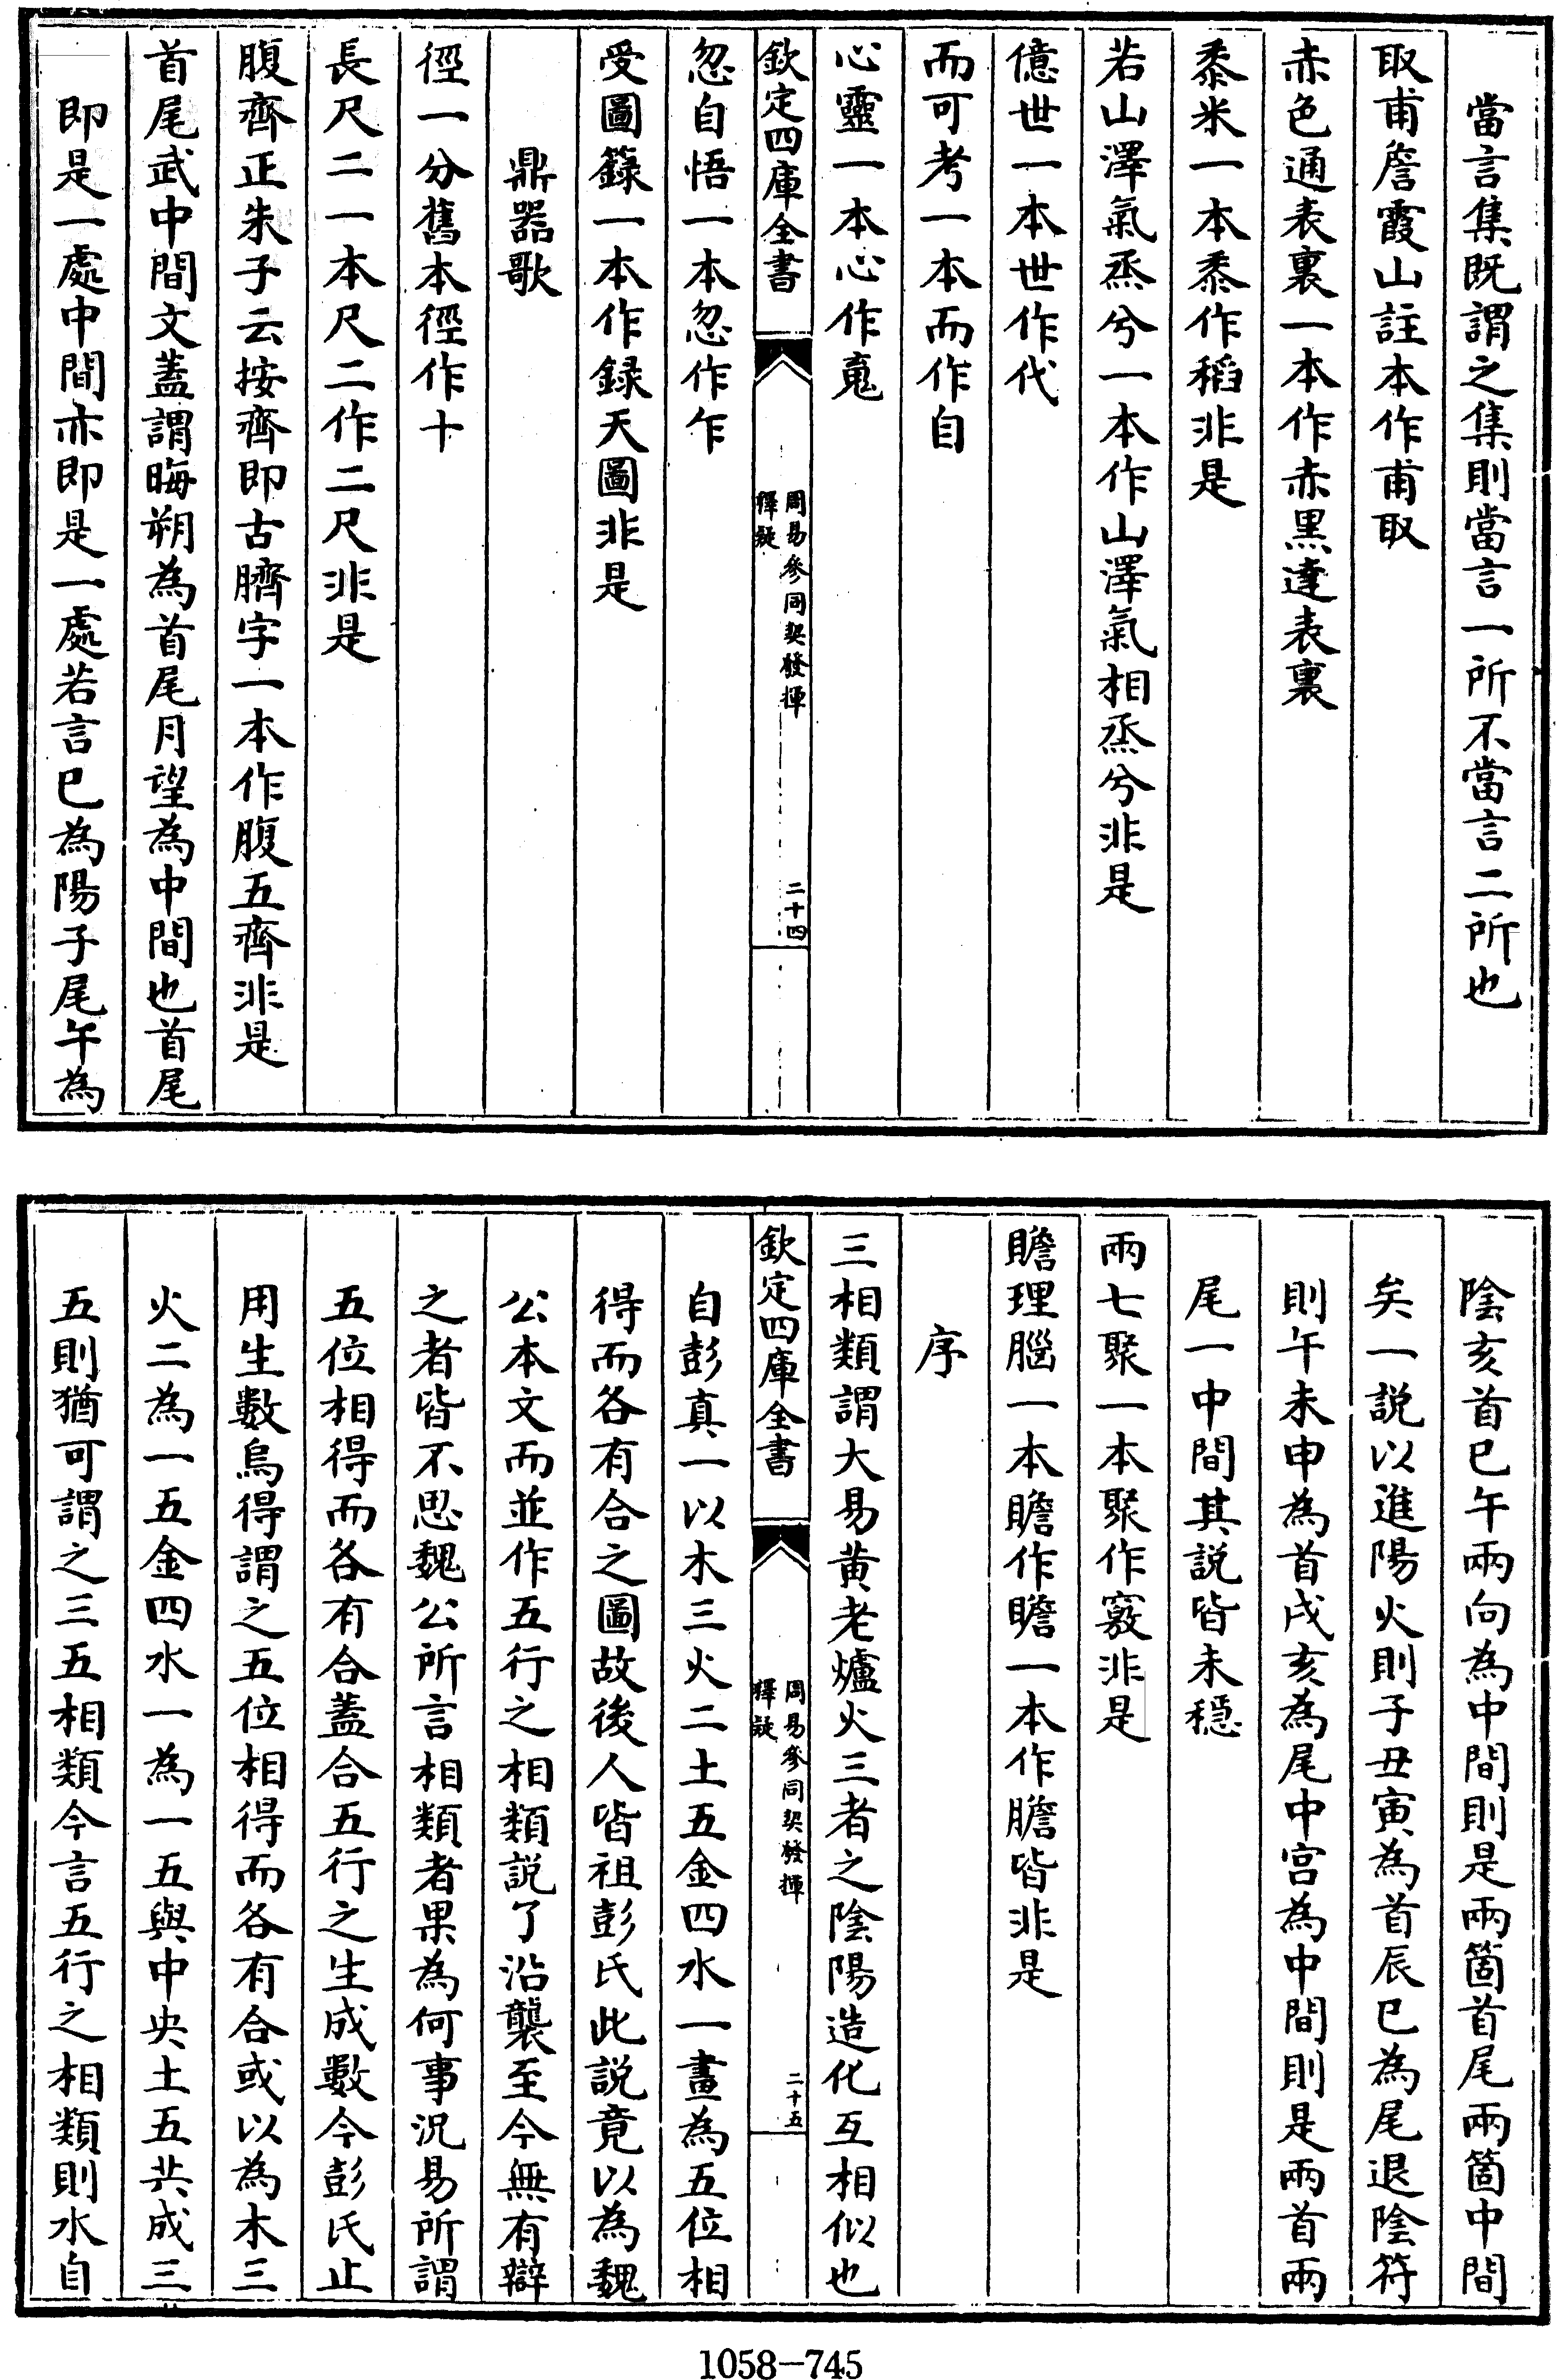 當言集既謂之集則當言一所不當言二所也
取甫詹霞山註本作甫取
赤色通表裏一本作赤黑達表裏
黍米一本黍作稻非是
若山澤氣烝兮一本作山澤氣相烝兮非是
億世一本世作代
而可考一本而作自
心靈一本心作䰟
欽定四庫全書
周易參同契發揮
釋疑
二十四
忽自悟一本忽作乍
受圖籙一本作録天圖非是
鼎器歌
徑一分舊本徑作十
長尺二一本尺二作二尺非是
腹齊正朱子云按齊即古臍字一本作腹五齊非是
首尾武中間文蓋謂晦朔為首尾月望為中間也首尾
即是一處中間亦即是一處若言巳為陽子尾午為
陰亥首巳午兩向為中間則是兩箇首尾兩箇中間
矣一説以進陽火則子丑寅為首辰巳為尾退陰符
則午未申為首戌亥為尾中宫為中間則是兩首兩
尾一中間其説皆未穏
兩七聚一本聚作竅非是
贍理腦一本贍作瞻一本作膽皆非是
序
三相類謂大易黄老爐火三者之陰陽造化互相似也
欽定四庫全書
周易參同契發揮
釋疑
二十五
自彭真一以木三火二土五金四水一畫為五位相
得而各有合之圖故後人皆祖彭氏此説竟以為魏
公本文而並作五行之相類説了沿襲至今無有辯
之者皆不思魏公所言相類者果為何事況易所謂
五位相得而各有合蓋合五行之生成數今彭氏止
用生數烏得謂之五位相得而各有合或以為木三
火二為一五金四水一為一五與中央土五共成三
五則猶可謂之三五相類今言五行之相類則水自
1058-745